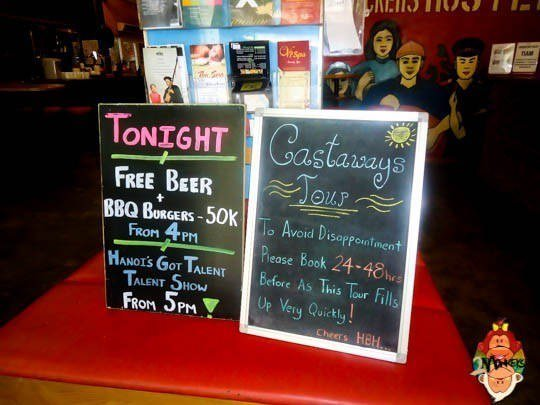 CKERS HOSTEL
The Spa
Vr Spa
TONIGHT
FREE BEER
+
BBQ BURGERS - 50K
FROM 4PM
HANOI'S GOT TALENT
TALENT SHOW
FROM 5PM
Castaways
Tour
To Avoid Disappointment
Please Book 24-48hrs
Before As This Tour Fills
Up Very Quickly!
Cheers HBH...